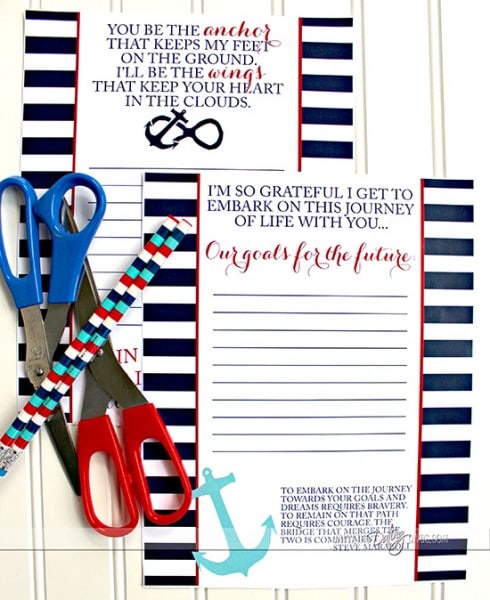 YOU BE THE anchor
THAT KEEPS MY FEET
ON THE GROUND.
I'LL BE THE wings
THAT KEEP YOUR HEART
IN THE CLOUDS.
IN
I'M SO GRATEFUL I GET TO
EMBARK ON THIS JOURNEY
OF LIFE WITH YOU...
Our goals for the future
TO EMBARK ON THE JOURNEY
TOWARDS YOUR GOALS AND
DREAMS REQUIRES BRAVERY.
TO REMAIN ON THAT PATH
REQUIRES COURAGE. THE
BRIDGE THAT MERGES THE
TWO IS COMMITMENT.
-STEVE